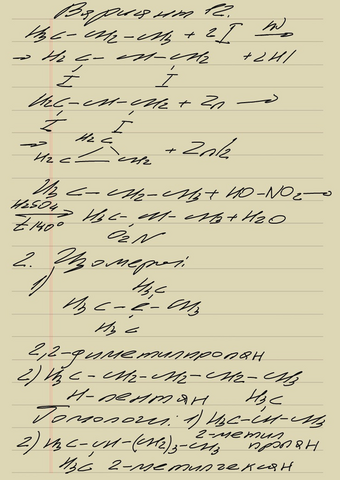 Вариант 12.
H3C - CH2 - CH3 + 2I hν→
→ H2C - CH - CH2 + 2HI
I I
H2C - CH - CH2 + Zn →
I I
H2C
→ H2C CH2 + ZnI2
H3C - CH2 - CH3 + HO-NO2 →
H2SO4 t 140° → H3C - CH - CH3 + H2O
O2N
2. Изомеры:
1) H3C
H3C - C - CH3
H3C
2,2-диметилпропан
2) H3C - CH2 - CH2 - CH2 - CH3
Н-пентан H3C
Гомологи: 1) H3C - CH - CH3
2-метил пропан
2) H3C - CH - (CH2)3 - CH3
H3C 2-метилгексан